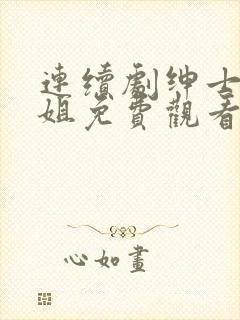 連續劇绅士
姐免費觀看
心如畫